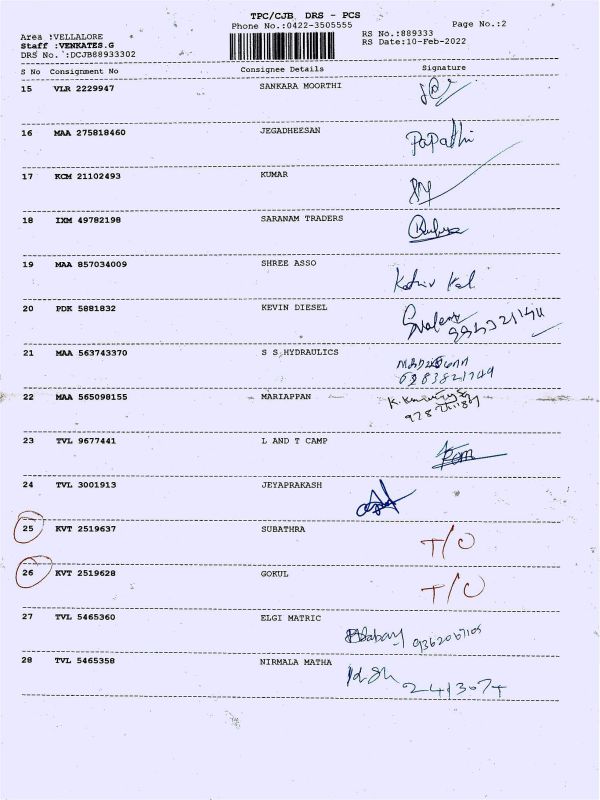 TPC/CJB DRS - PCS
Phone No.:0422-3505555
Page No.:2
Area :VELLALORE
RS No.:889333
Staff :VENKATES.G
RS Date:10-Feb-2022
DRS No. :DCJB88933302
S No Consignment No Consignee Details Signature
15 VLR 2229947 SANKARA MOORTHI
16 MAA 275818460 JEGADHEESAN Papathi
17 KCM 21102493 KUMAR
18 IXM 49782198 SARANAM TRADERS
19 MAA 857034009 SHREE ASSO
20 PDK 5881832 KEVIN DIESEL
21 MAA 563743370 S S HYDRAULICS
22 MAA 565098155 MARIAPPAN
23 TVL 9677441 L AND T CAMP
24 TVL 3001913 JEYAPRAKASH
25 KVT 2519637 SUBATHRA T/O
26 KVT 2519628 GOKUL T/O
27 TVL 5465360 ELGI MATRIC
28 TVL 5465358 NIRMALA MATHA 2413074